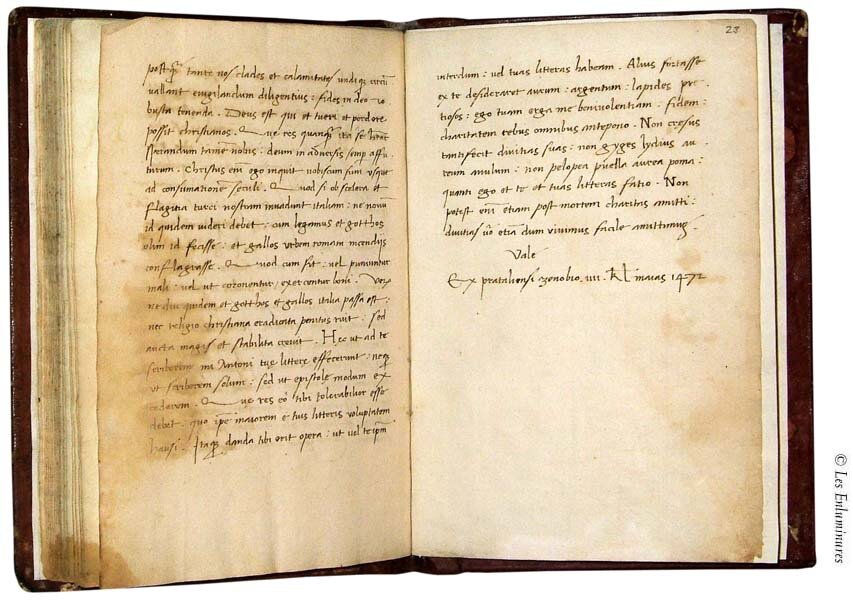 postq̃ tante nos clades et calamitates undiq; circũ
vallant evigilandum diligentius : fides in deo ro
busta tenenda . Deus est qui et tueri et perdere
possit christianos . Quę res quanq̃ ita se habeat
sperandum tamen nobis : deum in adversis semp affu
turum . Christus em̃ ego inquit vobiscum sum usque
ad consumationem seculi . Quod si ob scelera et
flagitia turci nostram invadunt italiam : ne novum
id quidem videri debet : cum legamus et gotthos
olim id fecisse : et gallos urbem romam incendijs
conflagrasse . Quod cum fit : vel puniuntur
mali : vel ut coronentur exercentur boni . Verũ
ne diu quidem et gotthos et gallos italia passa est :
nec religio christiana eradicata penitus ruit : sed
aucta magis et stabilita crevit . Hęc ut ad te
scriberem mi Antoni tuę litterę effecerunt : neq;
ut scriberem solum : sed ut epistolę modum ex
cederem . Quę res eo tibi tolerabilior esse
debet : quo ipse maiorem e tuis litteris voluptatem
hausi . Itaq; danda tibi erit opera : ut vel te ipsum
28
interdum : vel tuas litteras habeam . Alius fortasse
ex te desideraret aurum : argentum : lapides pre
tiosos : ego tuam erga me benivolentiam : fidem :
charitatem rebus omnibus antepono . Non cresus
tantifecit divitias suas : non gyges lydius au
reum anulum : non pelopea puella aurea poma :
quanti ego et te et tuas litteras fatio . Non
potest em̃ etiam post mortem charitas amitti :
divitias ṽo etiã dum vivimus facile amittimus .
Vale
Ex prataliensi cenobio . iiii . kl maias 1472
© Les Enluminures